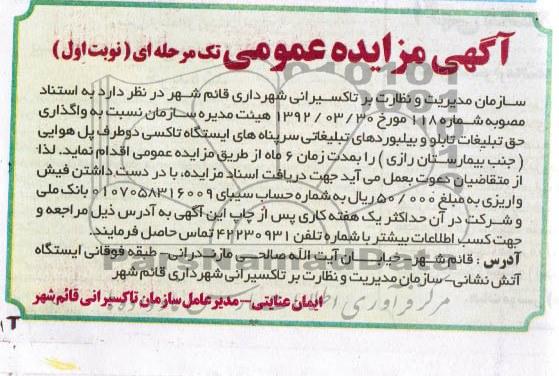 آگهی مزایده عمومی تک مرحله ای ( نوبت اول )
سازمان مدیریت و نظارت بر تاکسیرانی شهرداری قائم شهر در نظر دارد به استناد
مصوبه شماره ۱۱۸ مورخ ۱۳۹۲/۰۳/۳۰ هیئت مدیره سازمان نسبت به واگذاری
حق تبلیغات تابلو و بیلبوردهای تبلیغاتی سرپناه های ایستگاه تاکسی دوطرف پل هوایی
( جنب بیمارستان رازی ) را بمدت زمان ۶ ماه از طریق مزایده عمومی اقدام نماید. لذا
از متقاضیان دعوت بعمل می آید جهت دریافت اسناد مزایده، با در دست داشتن فیش
واریزی به مبلغ ۵۰/۰۰۰ ریال به شماره حساب سیبای ۰۱۰۷۰۵۸۳۱۶۰۰۹ بانک ملی
و شرکت در آن حداکثر یک هفته کاری پس از چاپ این آگهی به آدرس ذیل مراجعه و
جهت کسب اطلاعات بیشتر با شماره تلفن ۴۲۲۳۰۹۳۱ تماس حاصل فرمایند.
آدرس : قائم شهر - خیابان آیت الله صالحی مازندرانی - طبقه فوقانی ایستگاه
آتش نشانی - سازمان مدیریت و نظارت بر تاکسیرانی شهرداری قائم شهر
ایمان عنایتی - مدیرعامل سازمان تاکسیرانی قائم شهر